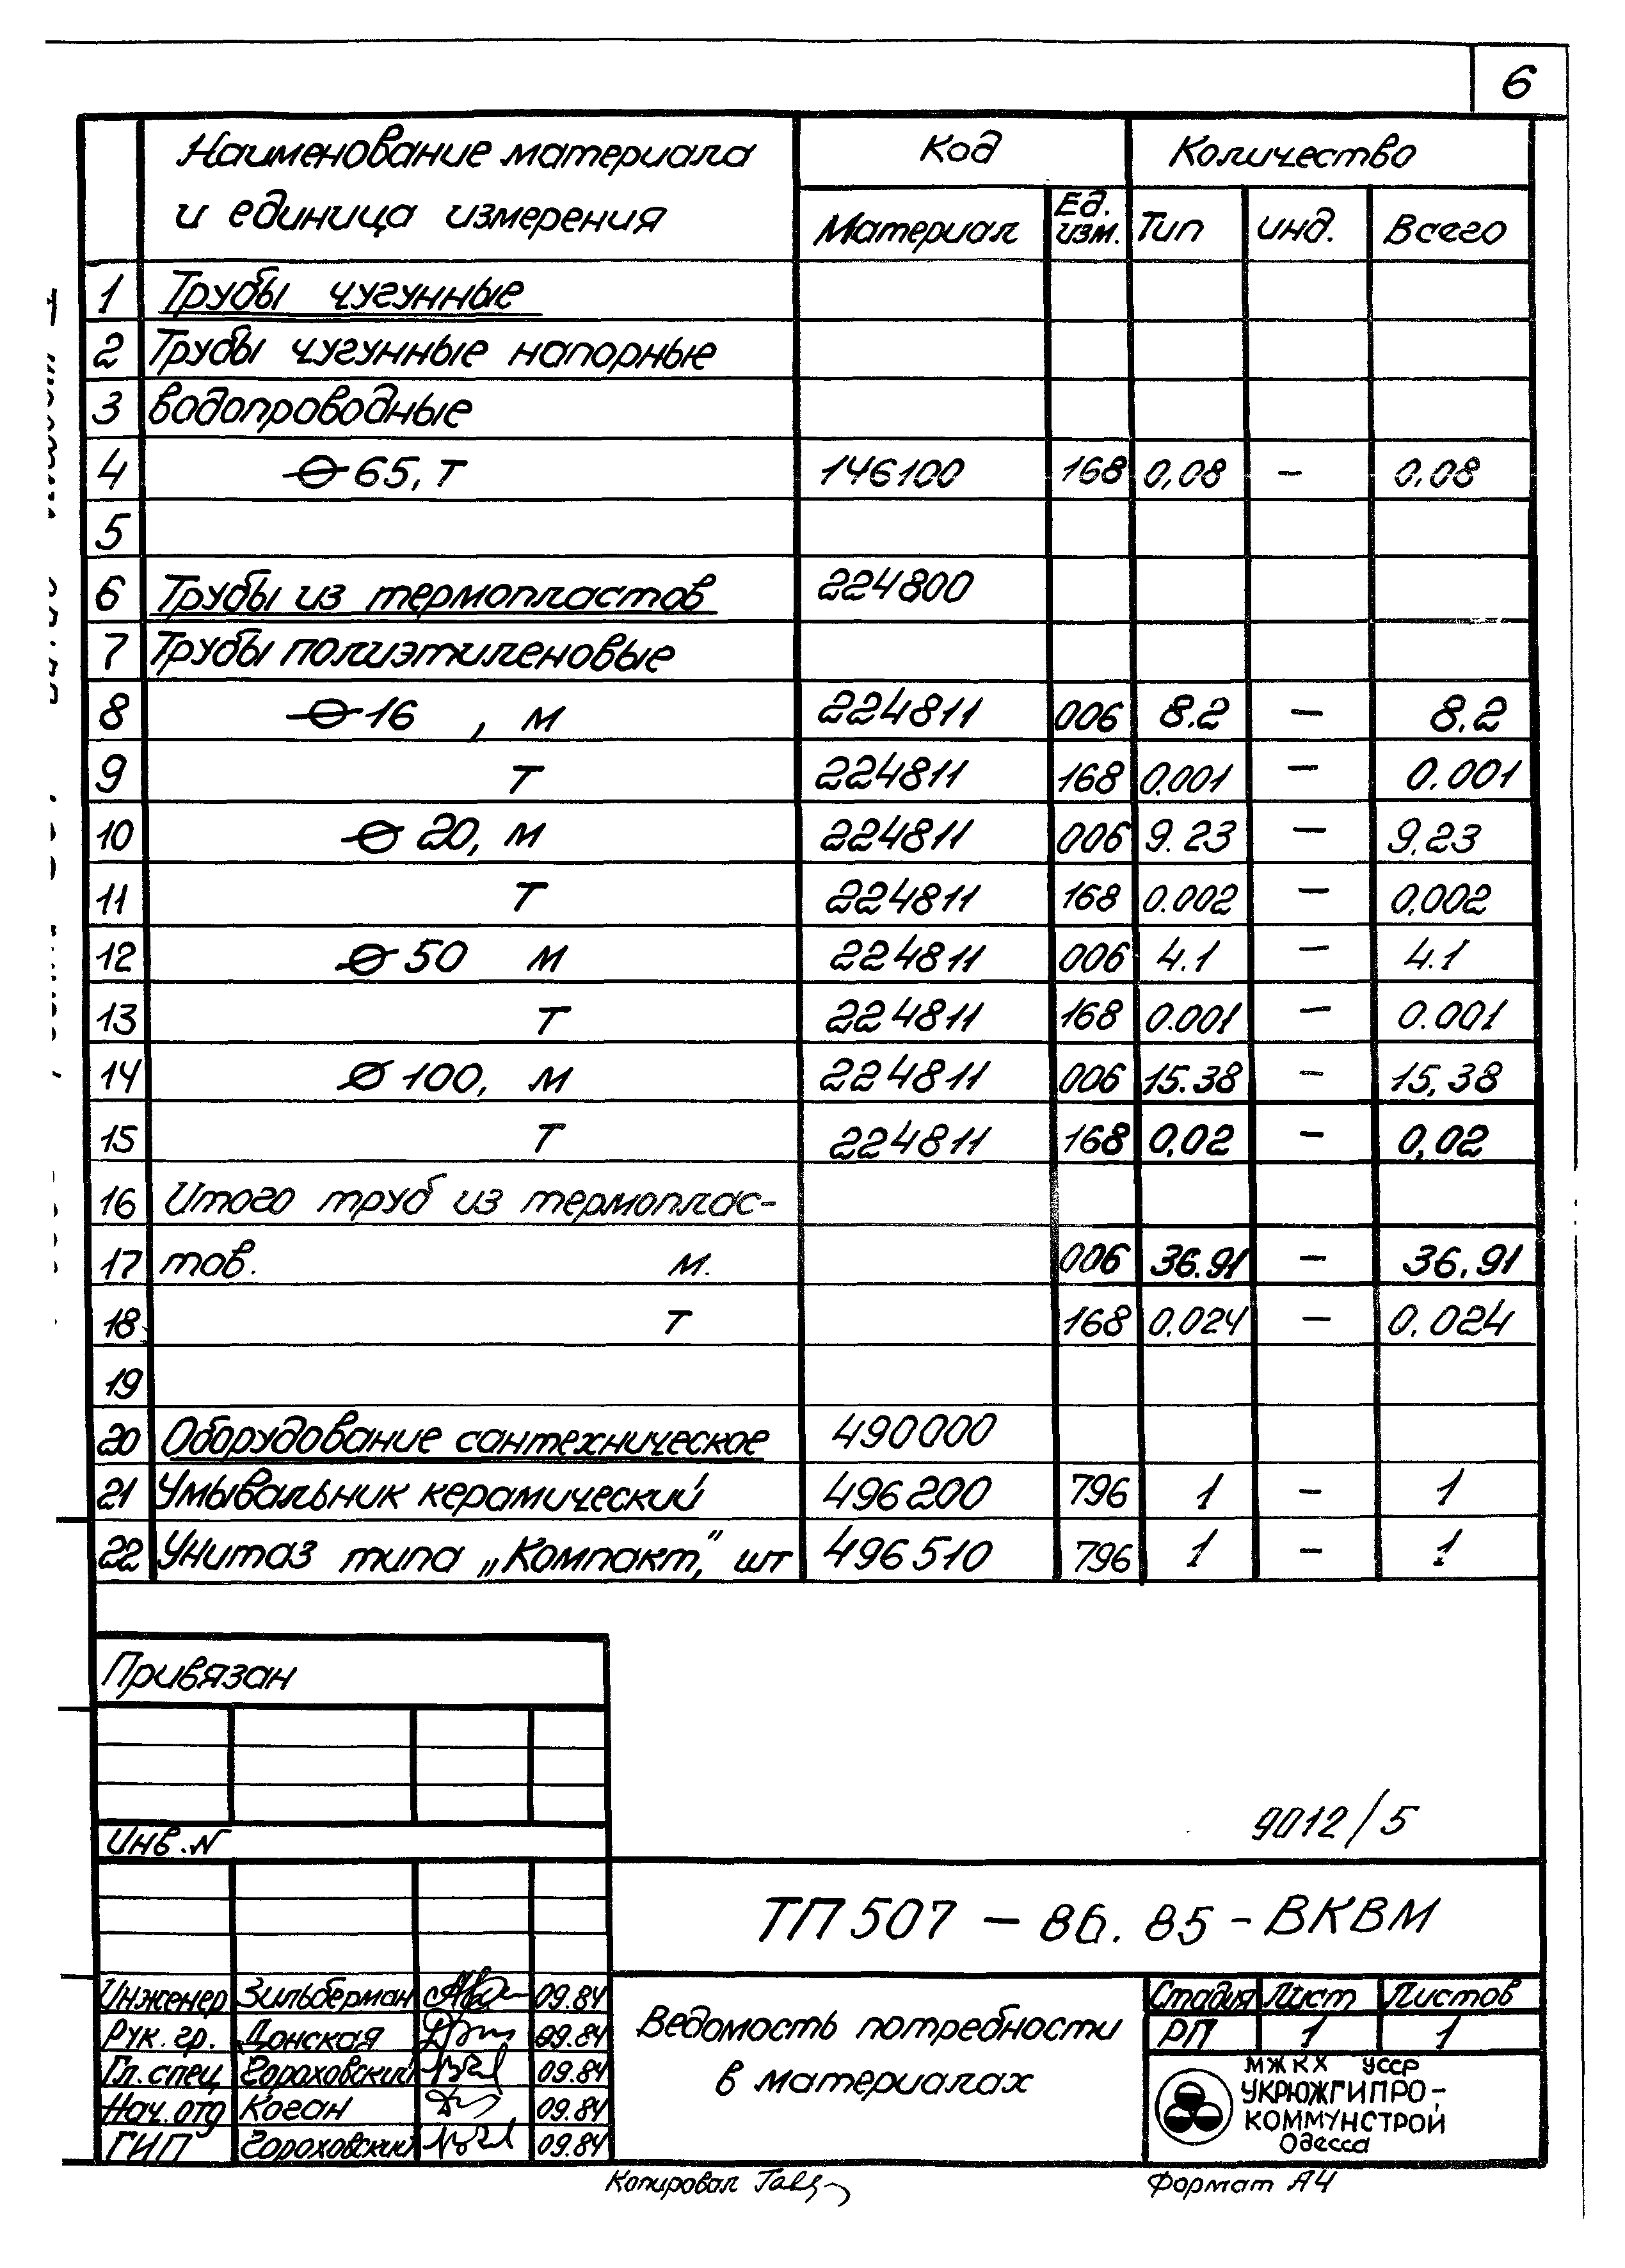 6
Наименование материала и единица измерения Код Количество
Материал Ед. изм. Тип инд. Всего
1 Трубы чугунные
2 Трубы чугунные напорные
3 водопроводные
4 Ø 65, т 146100 168 0,08 — 0,08
5
6 Трубы из термопластов 224800
7 Трубы полиэтиленовые
8 Ø 16 , м 224811 006 8.2 — 8,2
9 т 224811 168 0.001 — 0.001
10 Ø 20, м 224811 006 9.23 — 9,23
11 т 224811 168 0.002 — 0,002
12 Ø 50 м 224811 006 4.1 — 4.1
13 т 224811 168 0.001 — 0.001
14 Ø 100, м 224811 006 15.38 — 15,38
15 т 224811 168 0,02 — 0,02
16 Итого труб из термоплас-
17 тов. м. 006 36.91 — 36,91
18 т 168 0,024 — 0,024
19
20 Оборудование сантехническое 490000
21 Умывальник керамический 496200 796 1 — 1
22 Унитаз типа „Компакт”, шт 496510 796 1 — 1
Привязан
9012/5
Инв. N
ТП 507 — 86.85 - ВКВМ
Инженер Зильберман 09.84
Рук. гр. Донская 09.84
Гл. спец Гороховский 09.84
Нач. отд Коган 09.84
ГИП Гороховский 09.84
Ведомость потребности
в материалах
Стадия Лист Листов
РП 1 1
МЖКХ УССР
УКРЮЖГИПРО-
КОММУНСТРОЙ
Одесса
Копировал
Формат А4